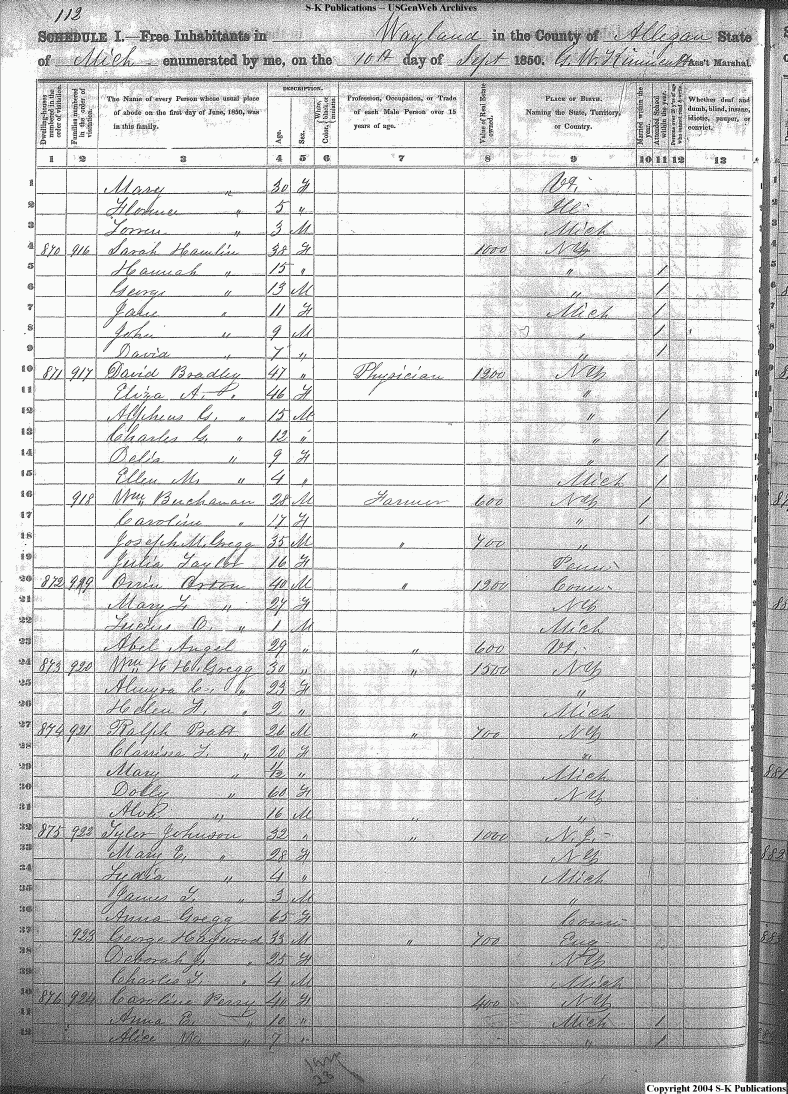 S-K Publications – USGenWeb Archives
112
SCHEDULE I.—Free Inhabitants in Wayland in the County of Allegan State
of Mich enumerated by me, on the 10th day of Sept 1850. Ass't Marshal.
Dwelling-houses numbered in the order of visitation.
Families numbered in the order of visitation.
The Name of every Person whose usual place of abode on the first day of June, 1850, was in this family.
DESCRIPTION.
Age.
Sex.
White, Color, black, or mulatto.
Profession, Occupation, or Trade of each Male Person over 15 years of age.
Value of Real Estate owned.
PLACE OF BIRTH. Naming the State, Territory, or Country.
Married within the year.
Attended School within the year.
Whether deaf and dumb, blind, insane, idiotic, pauper, or convict.
1 2 3 4 5 6 7 8 9 10 11 12 13
1 Mary " 30 F Vt.
2 Florence " 5 " Ill.
3 Lorren " 3 M Mich
4 870 916 Sarah Hamlin 38 F 1000 NY
5 Hannah " 15 " " 1
6 George " 13 M " 1
7 Jane " 11 F Mich 1
8 John " 9 M " 1
9 David " 7 " " 1
10 871 917 David Bradley 47 " Physician 1200 NY
11 Eliza A. " 46 F "
12 Alpheus G. " 15 M " 1
13 Charles G. " 12 " " 1
14 Delia " 9 F " 1
15 Ellen M. " 4 " Mich 1
16 918 Wm Buchanan 28 M Farmer 600 NY 1
17 Caroline " 17 F " 1
18 Joseph M. Gregg 35 M " 700 "
19 Julia Taylor 16 F Penn
20 872 919 Orrin Orton 40 M " 1200 Conn
21 Mary L. " 27 F NY
22 Lucius O. " 1 M Mich
23 Abel Angel 29 " " 600 Vt.
24 873 920 Wm H H Gregg 30 " " 1500 NY
25 Almyra C. " 23 F "
26 Helen F. " 2 " Mich
27 874 921 Ralph Pratt 26 M " 700 NY
28 Clarissa L. " 20 F "
29 Mary " 4/12 " Mich
30 Dolly " 60 F NY
31 16 M " "
32 875 922 Tyler Johnson 32 " " 1000 N.J.
33 Mary E. " 28 F NY
34 Lydia " 4 " Mich
35 James L. " 3 M "
36 Anna Gregg 65 F Conn
37 923 George Haywood 33 M " 700 Eng
38 Deborah J. " 25 F NY
39 Charles L. " 4 M Mich
40 876 924 Caroline Perry 40 F 400 NY
41 Anna E. " 10 " Mich 1
42 Alice W. " 7 " " 1
23
Copyright 2004 S-K Publications